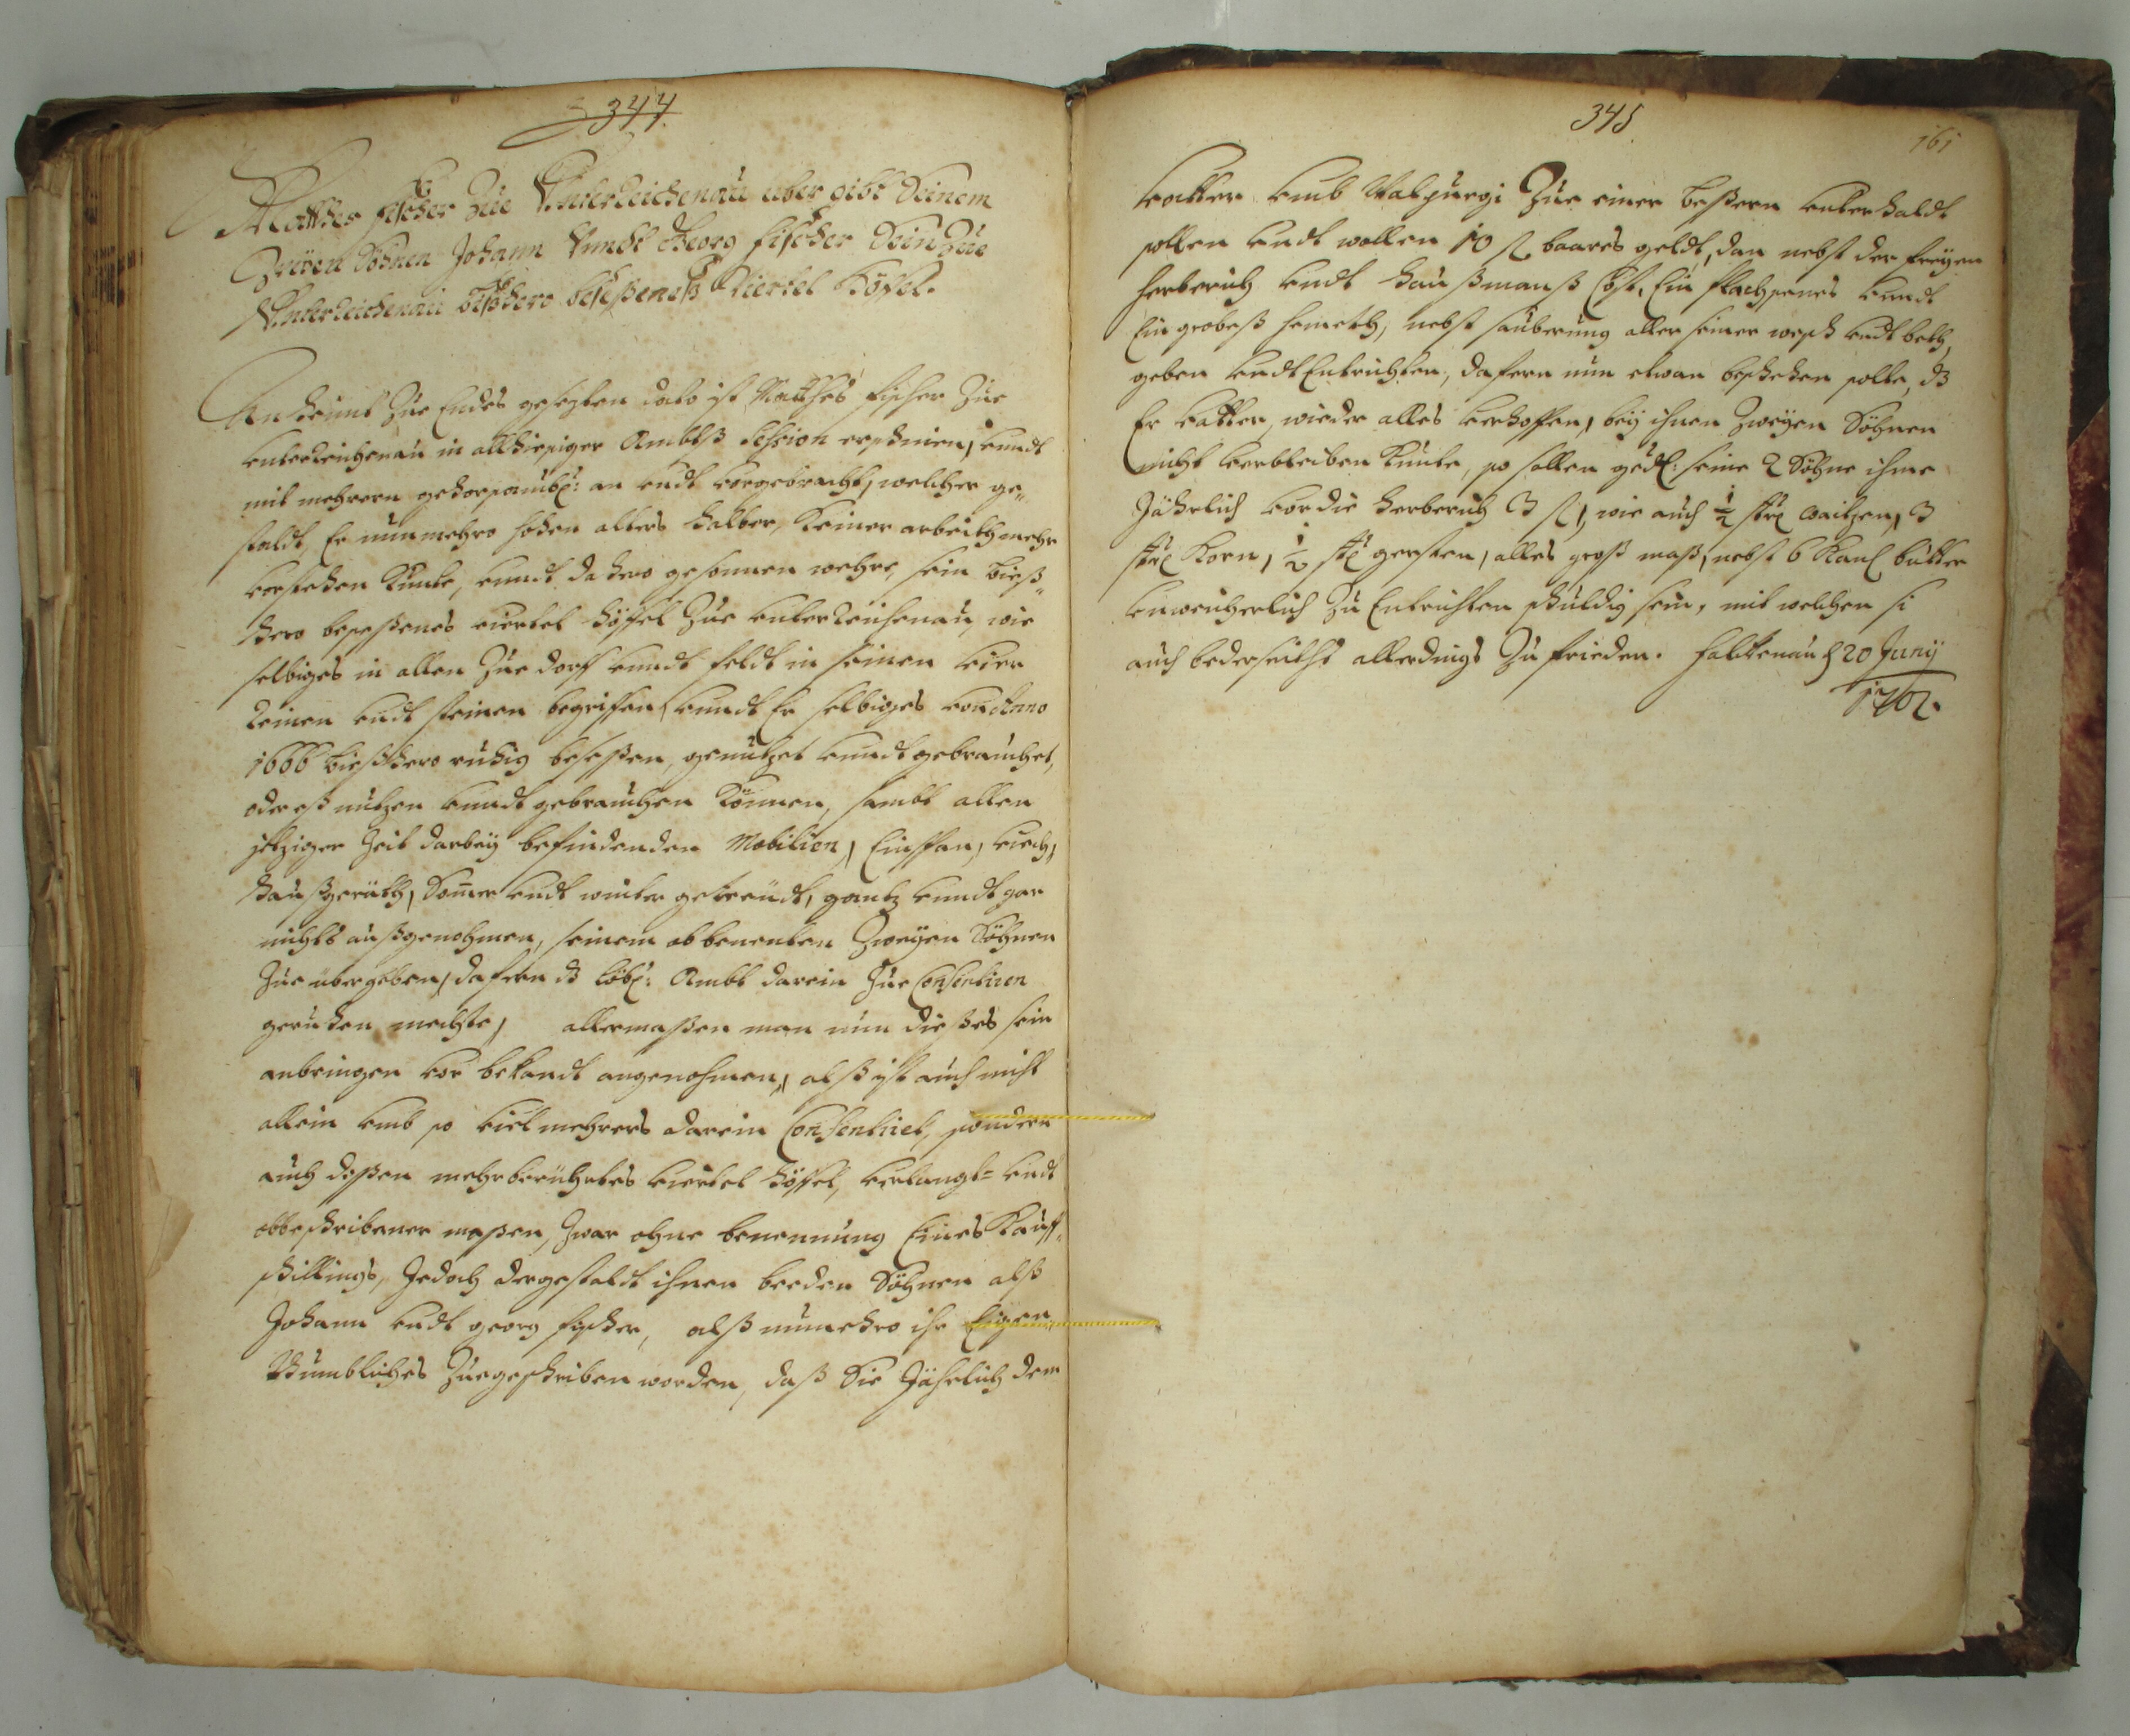 344
Matthes fischer Zue Vnterreichenau übergibt Seinem
Zweÿen Söhnen Johann Vnndt Georg fischer Sein Zue
Vnterreichenau bißhero beseßeneß Viertel Höffel.
An heunt Zue Endes gesezten dato ist Matthes fischer Zue
vnterReichenau in allhiesiger Ambtß Session erschinen, vnndt
mit mehrern gehorsambl: an vndt vorgebracht, welcher ge„
staldt, Er nunmehro hohen alters halber, Keiner arbeith mehr
vorstehen Könte, vnndt dahero gesonnen wehre, sein bieß„
hero beseßenes viertel höffel Zue vnterReichenau, wie
selbiges in allen Zue dorff vnndt feldt in seinen vier
Reinen vndt steinen begriffen, vnndt Er selbiges von Anno
1666 bießhero ruhig beseßen, genutzet vnndt gebrauchet,
oder eß nutzen vnndt gebrauchen Können, sambt allen
jetziger Zeit darbeÿ befindenden Mobilien, Einspan, viech,
haußgeräth, Somer vndt winter getreüdt, gantz vnndt gar
nichts außgenohmen, seinem obbenenten Zweÿen Söhnen
Zue übergeben, dafern dz löbl: Ambt darein Zue Consentiren
geruhen mechte, allermaßen man nun dießes sein
anbringen vor bekandt angenohmen, alß ist auch nicht
allein vmb so viel mehrers darein Consentiret, sondern
auch deßen mehrberührtes viertel höffel, verlangt= vndt
obbeschribener maßen, Zwar ohne benennung Eines Kauff„
schillings, Jedoch dergestaldt ihnen beeden Söhnen alß
Johann vndt georg fischer, alß nunmehro ihr Eigen„
thumbliches Zuegeschriben worden, daß Sie Jährlich dem
345
161
vatter vmb Walpurgi Zue einer beßern vnterhaldt
sollen vndt wollen 10 f baares geldt, dan nebst der freÿen
herberich vndt haußmanß Cost, Ein flachsenes vnndt
Ein grobeß hemeth, nebst sauberung aller seiner wesch vndt beth,
geben vndt Entrichten, dafern nun etwan beschehen solte, dz
Er vatter, wieder alles verhoffen, beÿ ihnen Zweÿen Söhnen
nicht verbleiben Künte, so sollen gedl: seine 2 Söhne ihme
Jährlich vor die herberich 3 f, wie auch ½ strl waitzen, 3
strl Korn, ½ strl gersten, alles groß maß, nebst 6 Kanl butter
vnweicherlich Zu Entrichten schuldig sein, mit welchen si
auch bederseiths allerdings Zu frieden. falckenau d 20 Junÿ
1702.